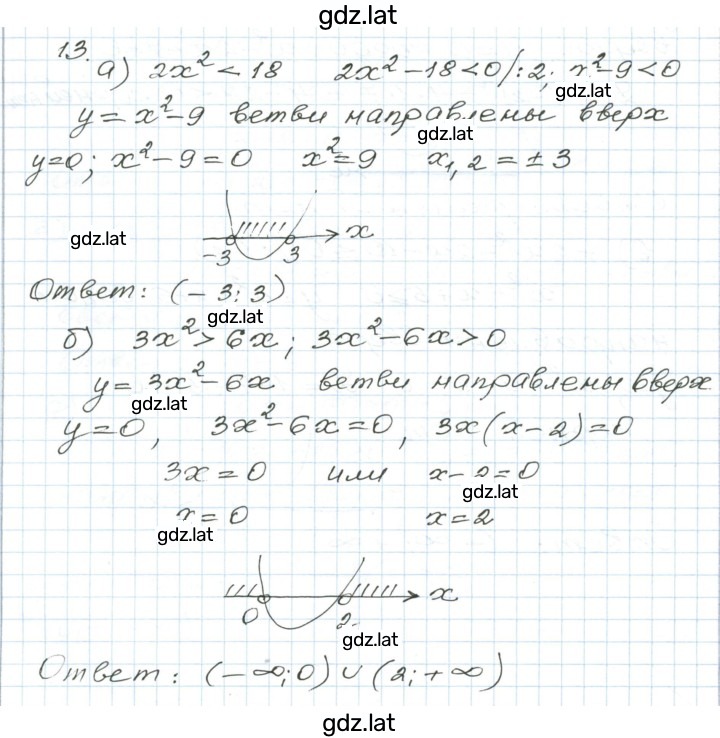 gdz.lat
13.
а) 2x² < 18   2x² - 18 < 0 /:2; x² - 9 < 0
gdz.lat
y = x² - 9 ветви направлены вверх
gdz.lat
y=0; x² - 9 = 0   x² = 9   x₁,₂ = ± 3
gdz.lat
x
-3   3
Ответ: (- 3; 3)
gdz.lat
б) 3x² > 6x; 3x² - 6x > 0
y = 3x² - 6x ветви направлены вверх
gdz.lat
y = 0, 3x² - 6x = 0, 3x(x - 2) = 0
3x = 0 или x - 2 = 0
gdz.lat
x = 0   x = 2
gdz.lat
x
0   2
gdz.lat
Ответ: (- ∞; 0) ∪ (2; + ∞)
gdz.lat